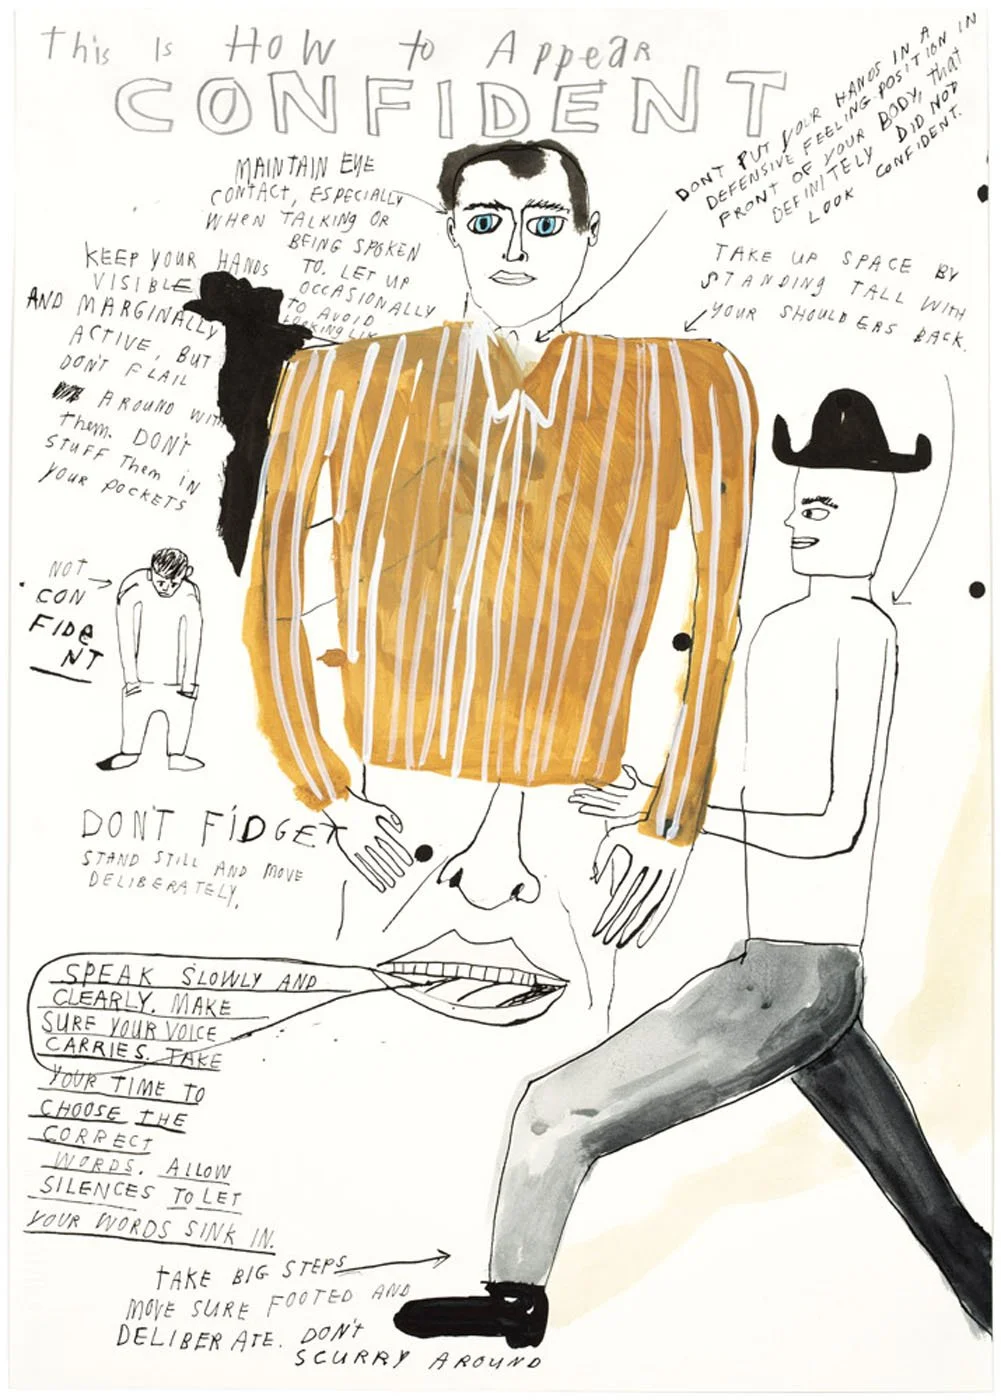 This is How to Appear
CONFIDENT
MAINTAIN EYE
CONTACT, ESPECIALLY
WHEN TALKING OR
BEING SPOKEN
TO. LET UP
OCCASIONALLY
TO AVOID
LOOKING LIK
DON'T PUT YOUR HANDS IN A
DEFENSIVE FEELING POSITION IN
FRONT OF YOUR BODY, that
DEFINITELY DID NOT
LOOK CONFIDENT.
TAKE UP SPACE BY
STANDING TALL WITH
YOUR SHOULDERS BACK.
KEEP YOUR HANDS
VISIBLE
AND MARGINALLY
ACTIVE, BUT
DON'T FLAIL
AROUND WITH
them. DON't
STUFF Them iN
YOUR POCKETS
NOT
CON
FIDe
NT
DON'T FIDGET
STAND STILL AND MOVE
DELIBERATELY.
SPEAK SLOWLY AND
CLEARLY. MAKE
SURE YOUR VOICE
CARRIES. TAKE
YOUR TIME TO
CHOOSE THE
CORRECT
WORDS. ALLOW
SILENCES TO LET
YOUR WORDS SINK IN.
TAKE BIG STEPS
AND
MOVE SURE FOOTED
DELIBERATE. DON't
SCURRY AROUND